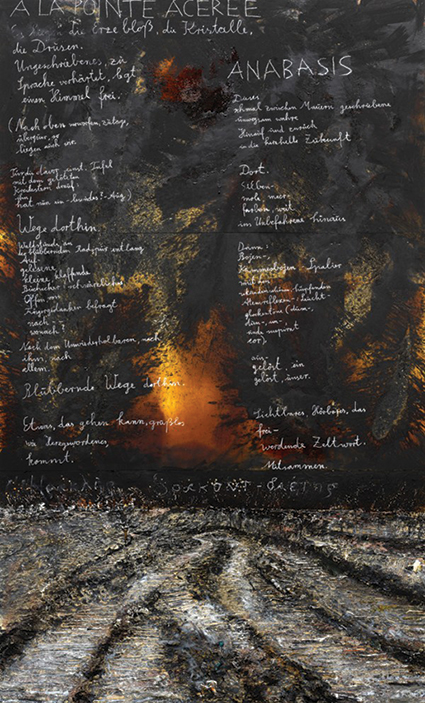 A LA POINTE ACEREE
die Erze bloß, die Kristalle,
die Drusen.
Ungeschriebenes, zu
Sprache verhärtet, legt
einen Himmel frei.
(Nach oben verworfen, zutage,
überquer, so
liegen auch wir.
Tür du davor einst, Tafel
mit dem getöteten
Kreidestern drauf:
ihn
hat nun ein - lesendes? - Aug.)
Wege dorthin
Waldstunde an
der blubbernden Radspur entlang
Auf-
gelesene
kleine, klaffende
Buchecker: schwärzliches
Offen, von
Fingergedanken befragt
nach
wonach?
Nach dem Unwiederholbaren, nach
ihm, nach
allem.
Blubbernde Wege dorthin.
Etwas, das gehen kann, grußlos
wie Herzgewordenes,
kommt.
ANABASIS
Dieses
schmal zwischen Mauern geschriebene
unwegsam-wahre
Hinauf und Zurück
in die herzhelle Zukunft
Dort.
Silben-
mole, meer-
farben, weit
ins Unbefahrene hinaus
Dann:
Bojen-
Kummerbojen-Spalier
mit den
sekundenschön hüpfenden
Atemreflexen: Leucht-
glockentöne (dum-,
dun-, un-,
unde suspirat
cor),
aus-
gelöst, ein
gelöst, unser.
Sichtbares, Hörbares, das
frei-
werdende Zeltwort.
Mitsammen.